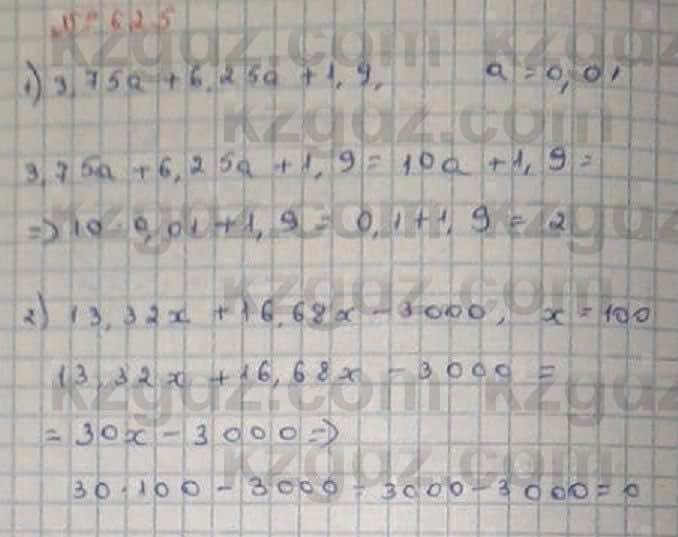 № 625
1) 3,75a + 6,25a + 1,9, a = 0,01
3,75a + 6,25a + 1,9 = 10a + 1,9 =
=> 10 · 0,01 + 1,9 = 0,1 + 1,9 = 2
2) 13,32x + 16,68x - 3000, x = 100
13,32x + 16,68x - 3000 =
= 30x - 3000 =>
30 · 100 - 3000 = 3000 - 3000 = 0
kzgdz.com
kzgdz.com
kzgdz.com
kzgdz.com
kzgdz.com